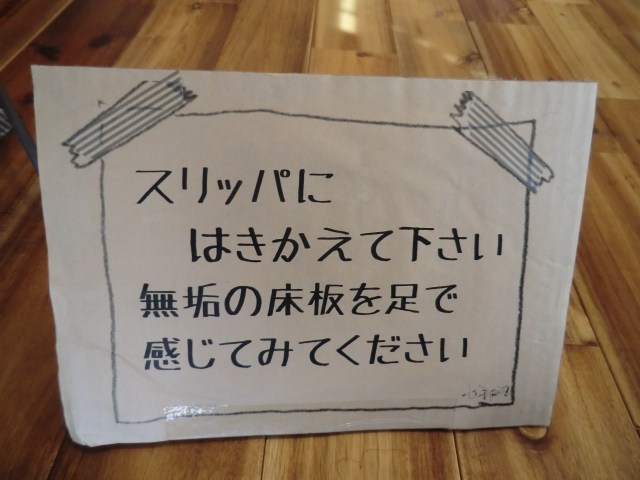 スリッパに
はきかえて下さい
無垢の床板を足で
感じてみてください